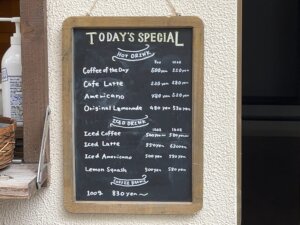 TODAY'S SPECIAL
HOT DRINK
Coffee of the Day 500 yen 550 yen
Cafe Latte
Americano
Original Lemonade 480 yen 530 yen
ICED DRINK
Iced Coffee 500 yen 550 yen
Iced Latte 550 yen 600 yen
Iced Americano 500 yen 550 yen
Lemon Squash 500 yen 550 yen
COFFEE BEANS
100g 830 yen ~